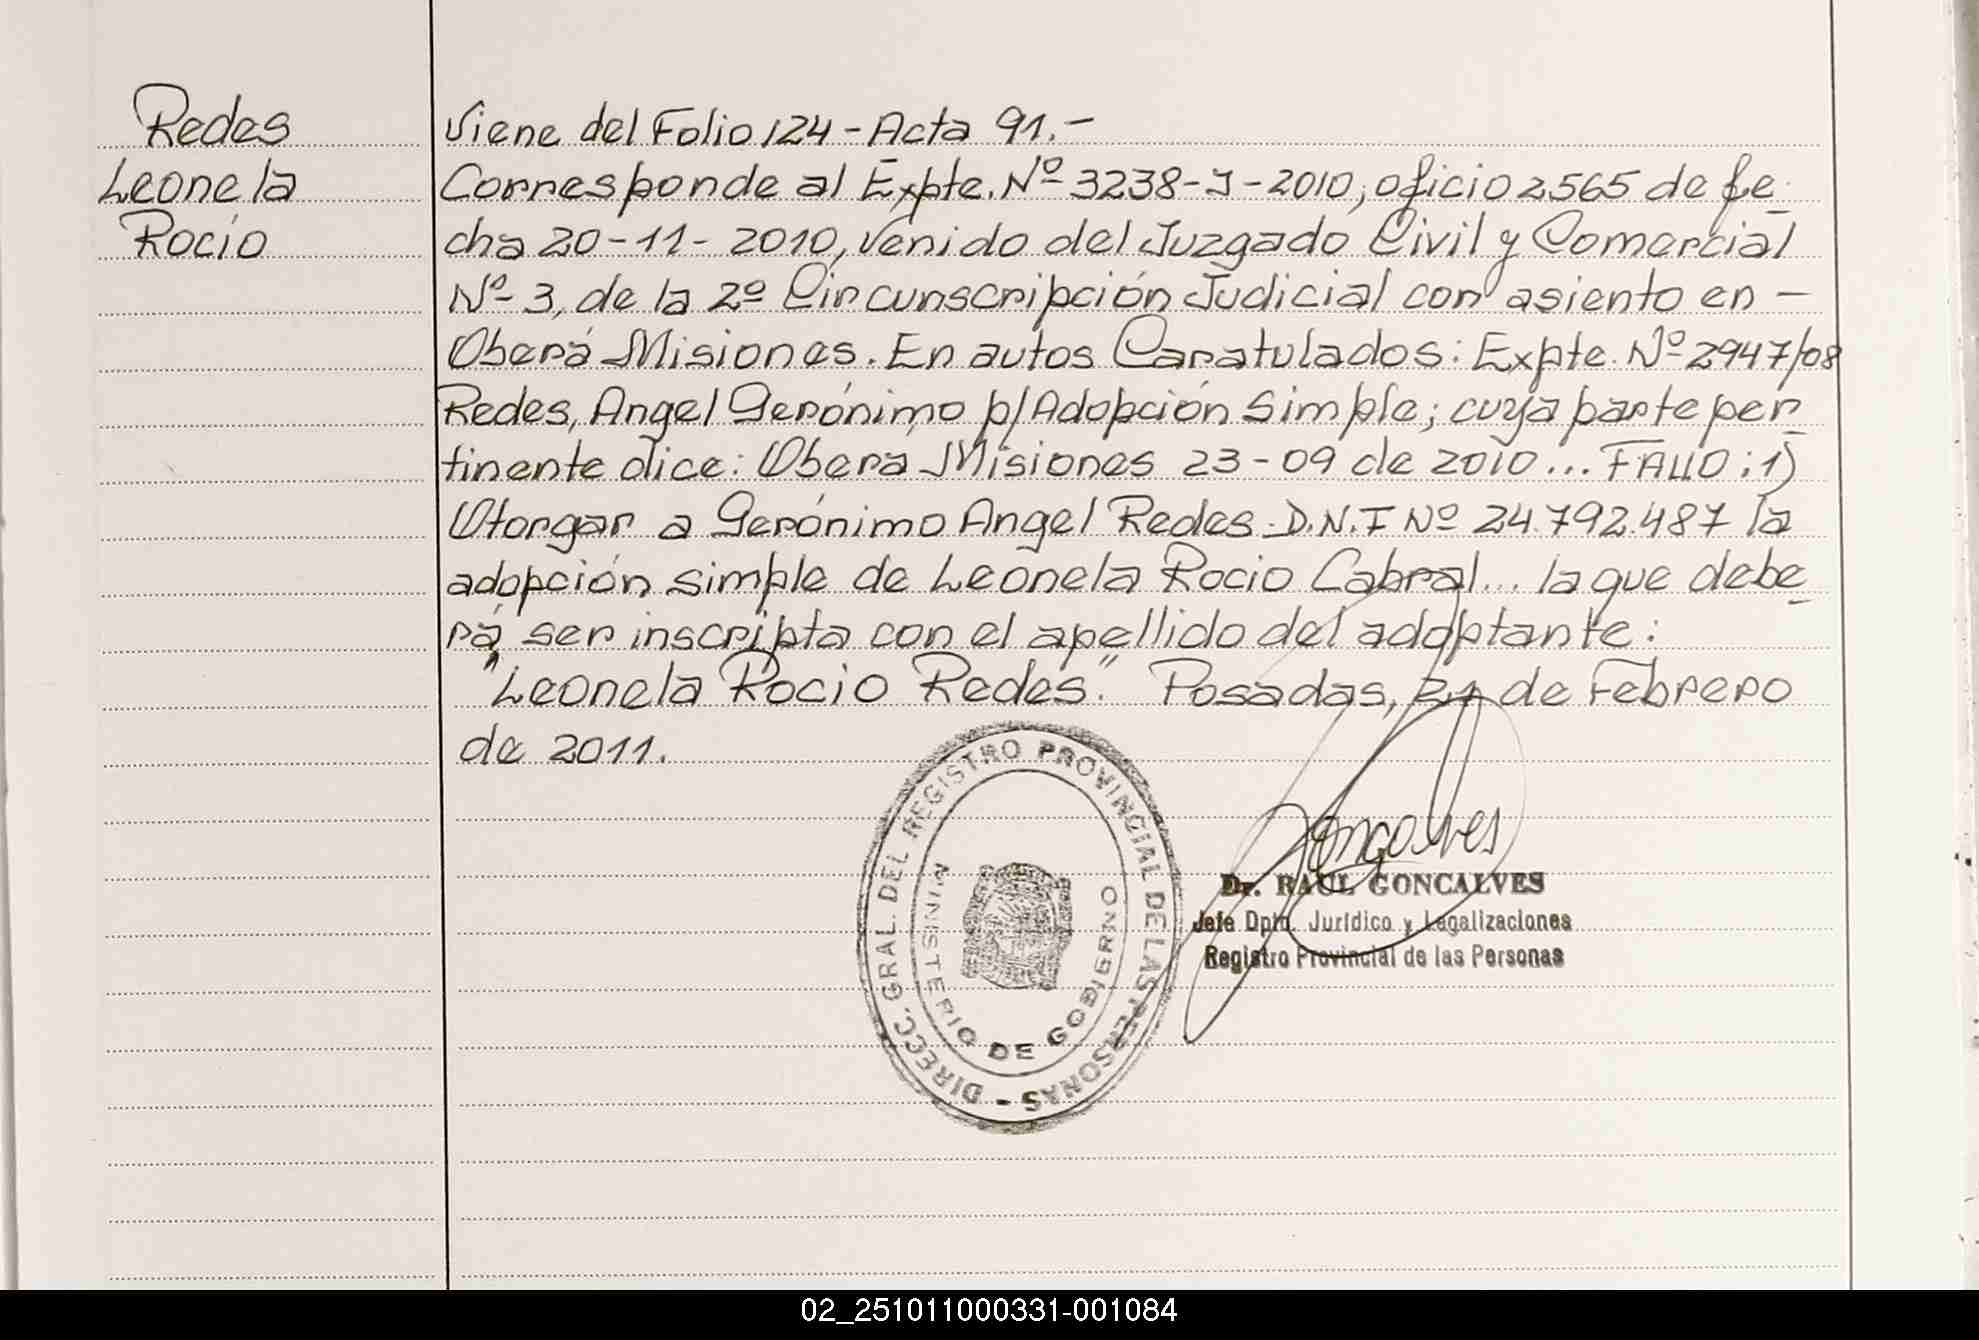 Redes
Leonela
Rocío
Viene del Folio 124 - Acta 91.-
Corresponde al Expte. Nº 3238-J-2010, oficio 2565 de fe
cha 20-11-2010, venido del Juzgado Civil y Comercial
Nº 3, de la 2º Circunscripción Judicial con asiento en -
Oberá Misiones. En autos Caratulados: Expte. Nº 2947/08
Redes, Angel Gerónimo p/Adopción Simple; cuya parte per
tinente dice: Oberá Misiones 23-09 de 2010... FALLO: 1)
Otorgar a Gerónimo Angel Redes D.N.I Nº 24.792.487 la
adopción simple de Leonela Rocio Cabral... la que debe
rá ser inscripta con el apellido del adoptante:
"Leonela Rocio Redes." Posadas, 21 de Febrero
de 2011.
DIRECC. GRAL. DEL REGISTRO PROVINCIAL DE LAS PERSONAS -
MINISTERIO DE GOBIERNO
Goncalves
Dr. RAUL GONCALVES
Jefe Dpto. Jurídico y Legalizaciones
Registro Provincial de las Personas
02_251011000331-001084